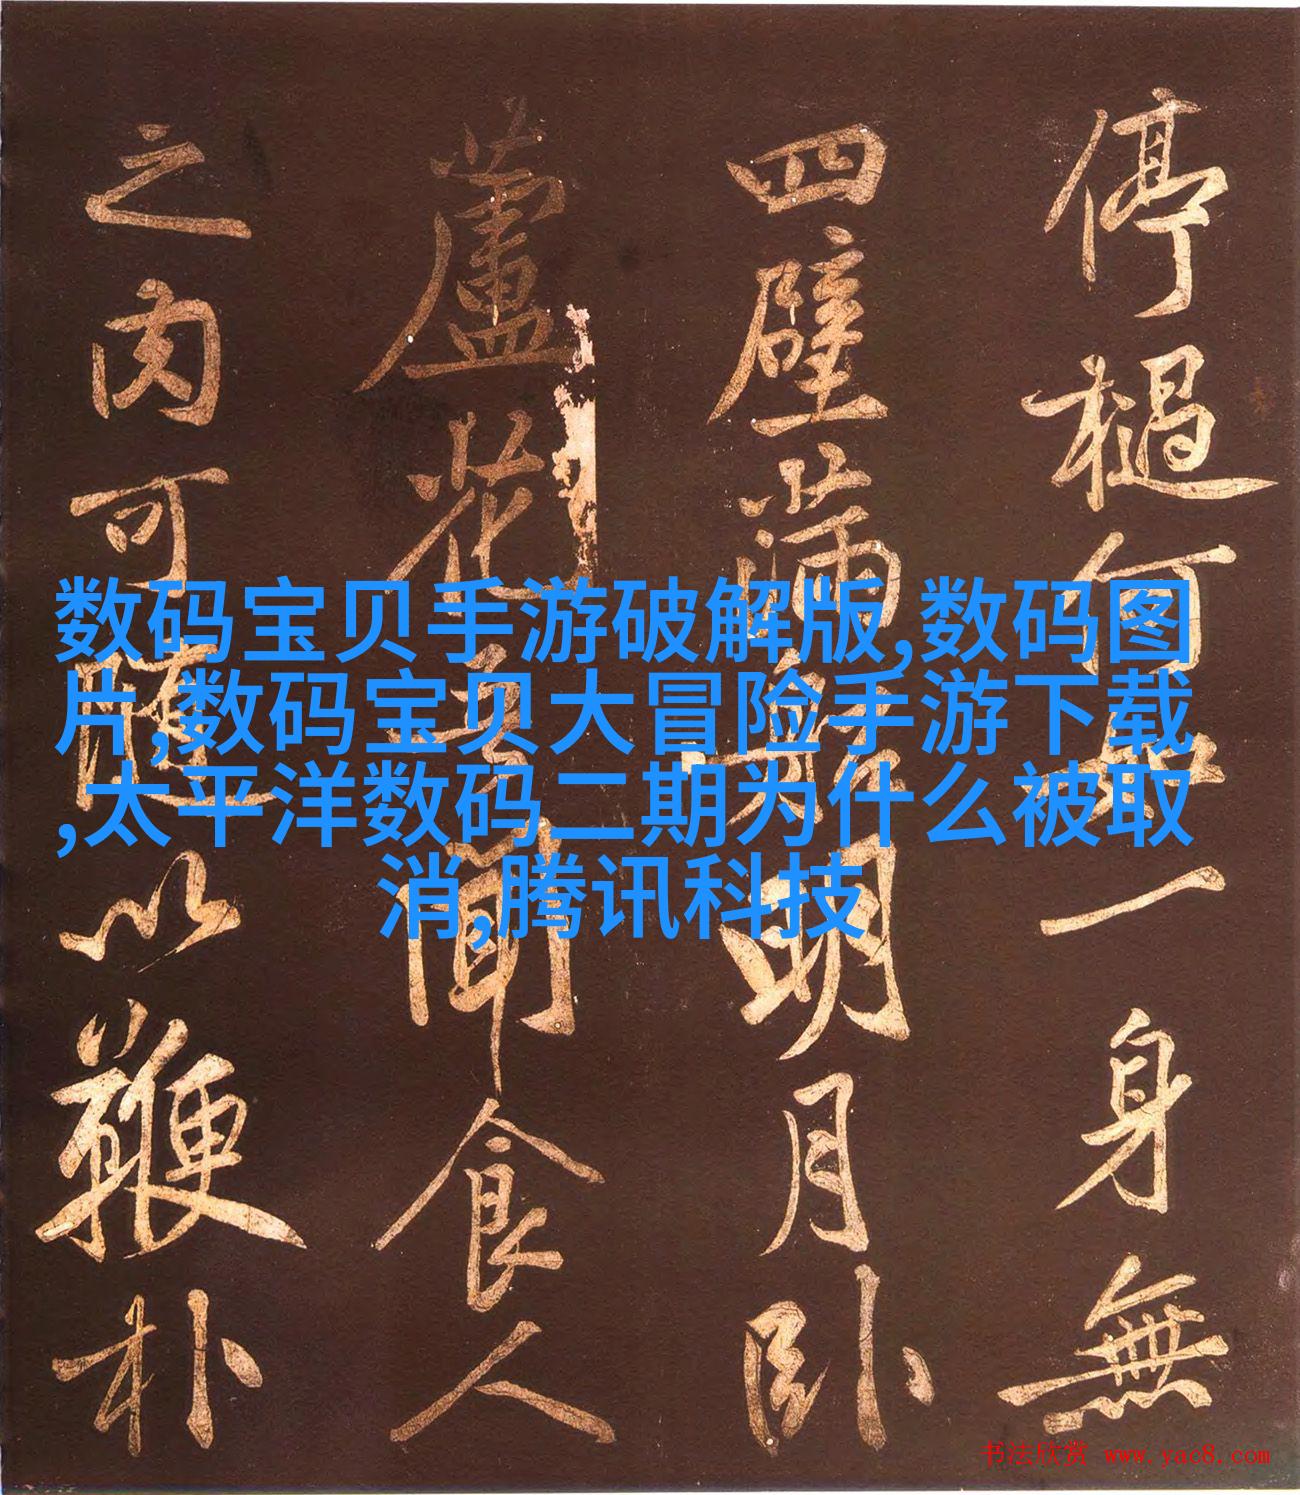 停檛何無一身無
四壁滿解明月卧
蘆花吾聞食人
之肉可隨以鞭朴
数码宝贝手游破解版,数码图
片,数码宝贝大冒险手游下载
,太平洋数码二期为什么被取
消,腾讯科技
书法欣赏 www.yac8.com